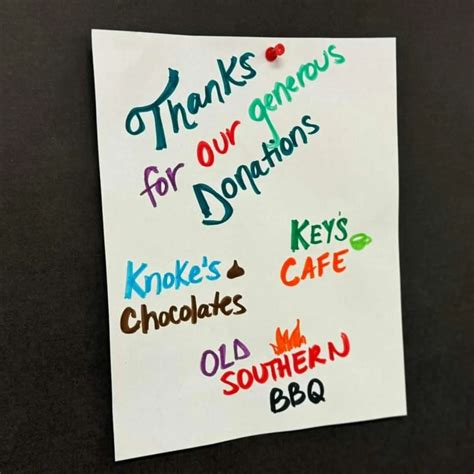 Thanks
for our generous
Donations
Knoke's
Chocolates
KEY'S
CAFE
OLD
SOUTHERN
BBQ